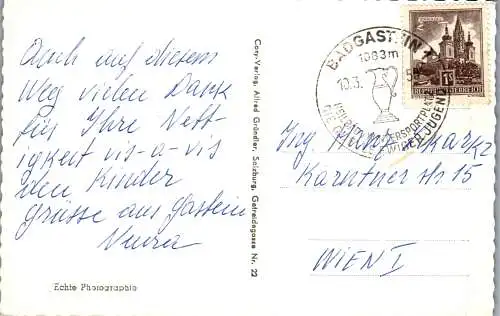 Auch auf diesem
Weg vielen Dank
für Ihre Nett-
igkeit vis-a-vis
den Kinder
Grüsse aus Gastein
Echte Photographie
Cosy-Verlag, Alfred Gründler, Salzburg, Getreidegasse Nr. 22
BADGASTEIN 1
1083m
10.3.
REPUBLIK ÖSTERREICH
Ing.
Kärntner Str 15
WIEN I